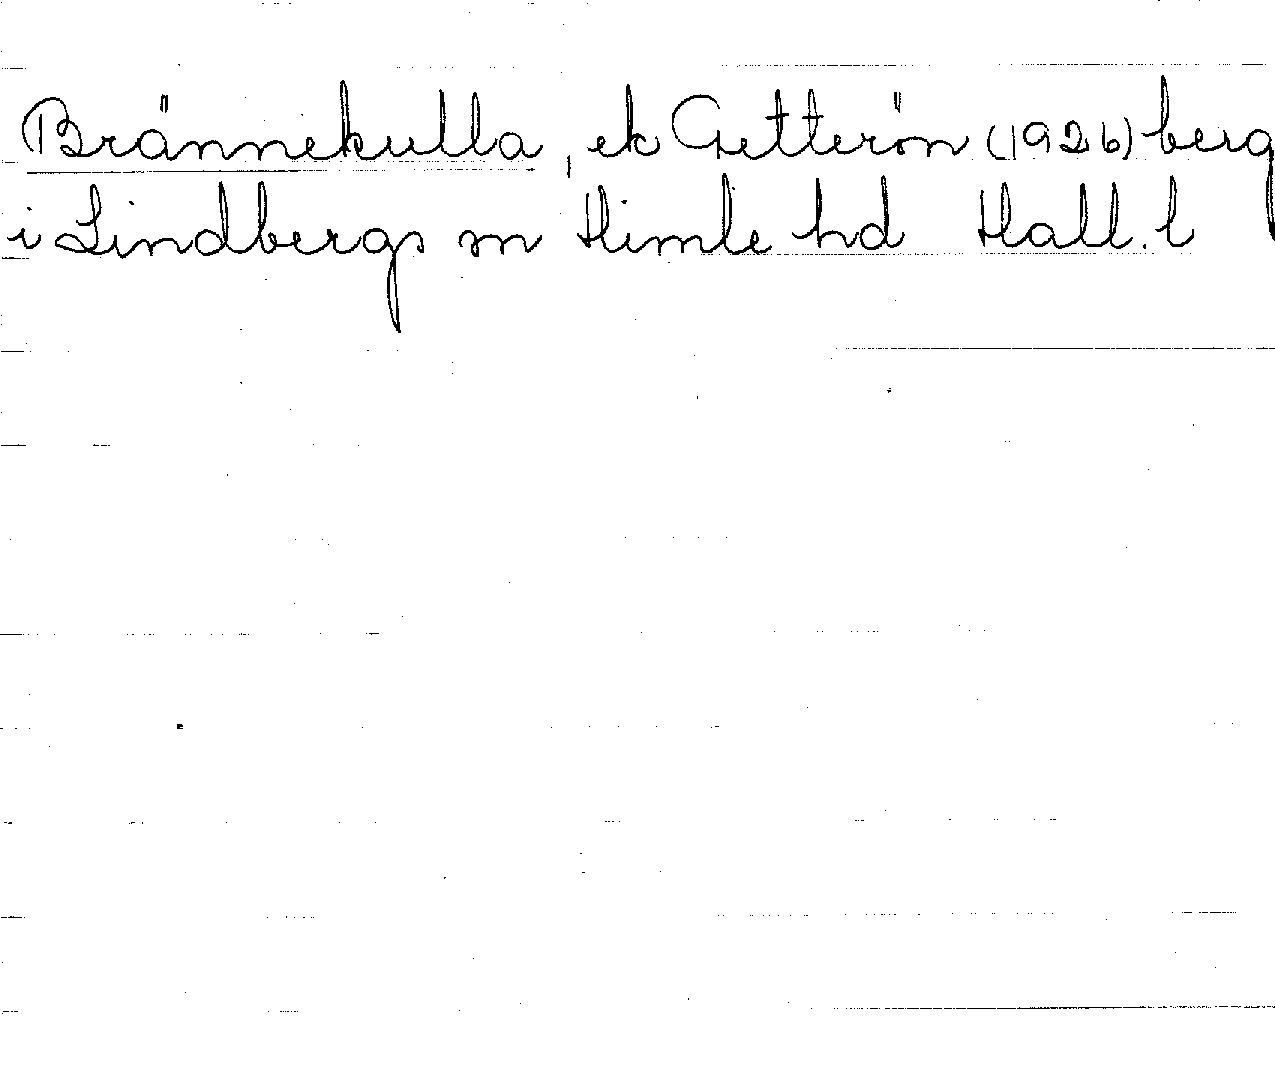 Brännekulla, ek Getterön (1926) berg
i Lindbergs sn Himle hd Hall. l